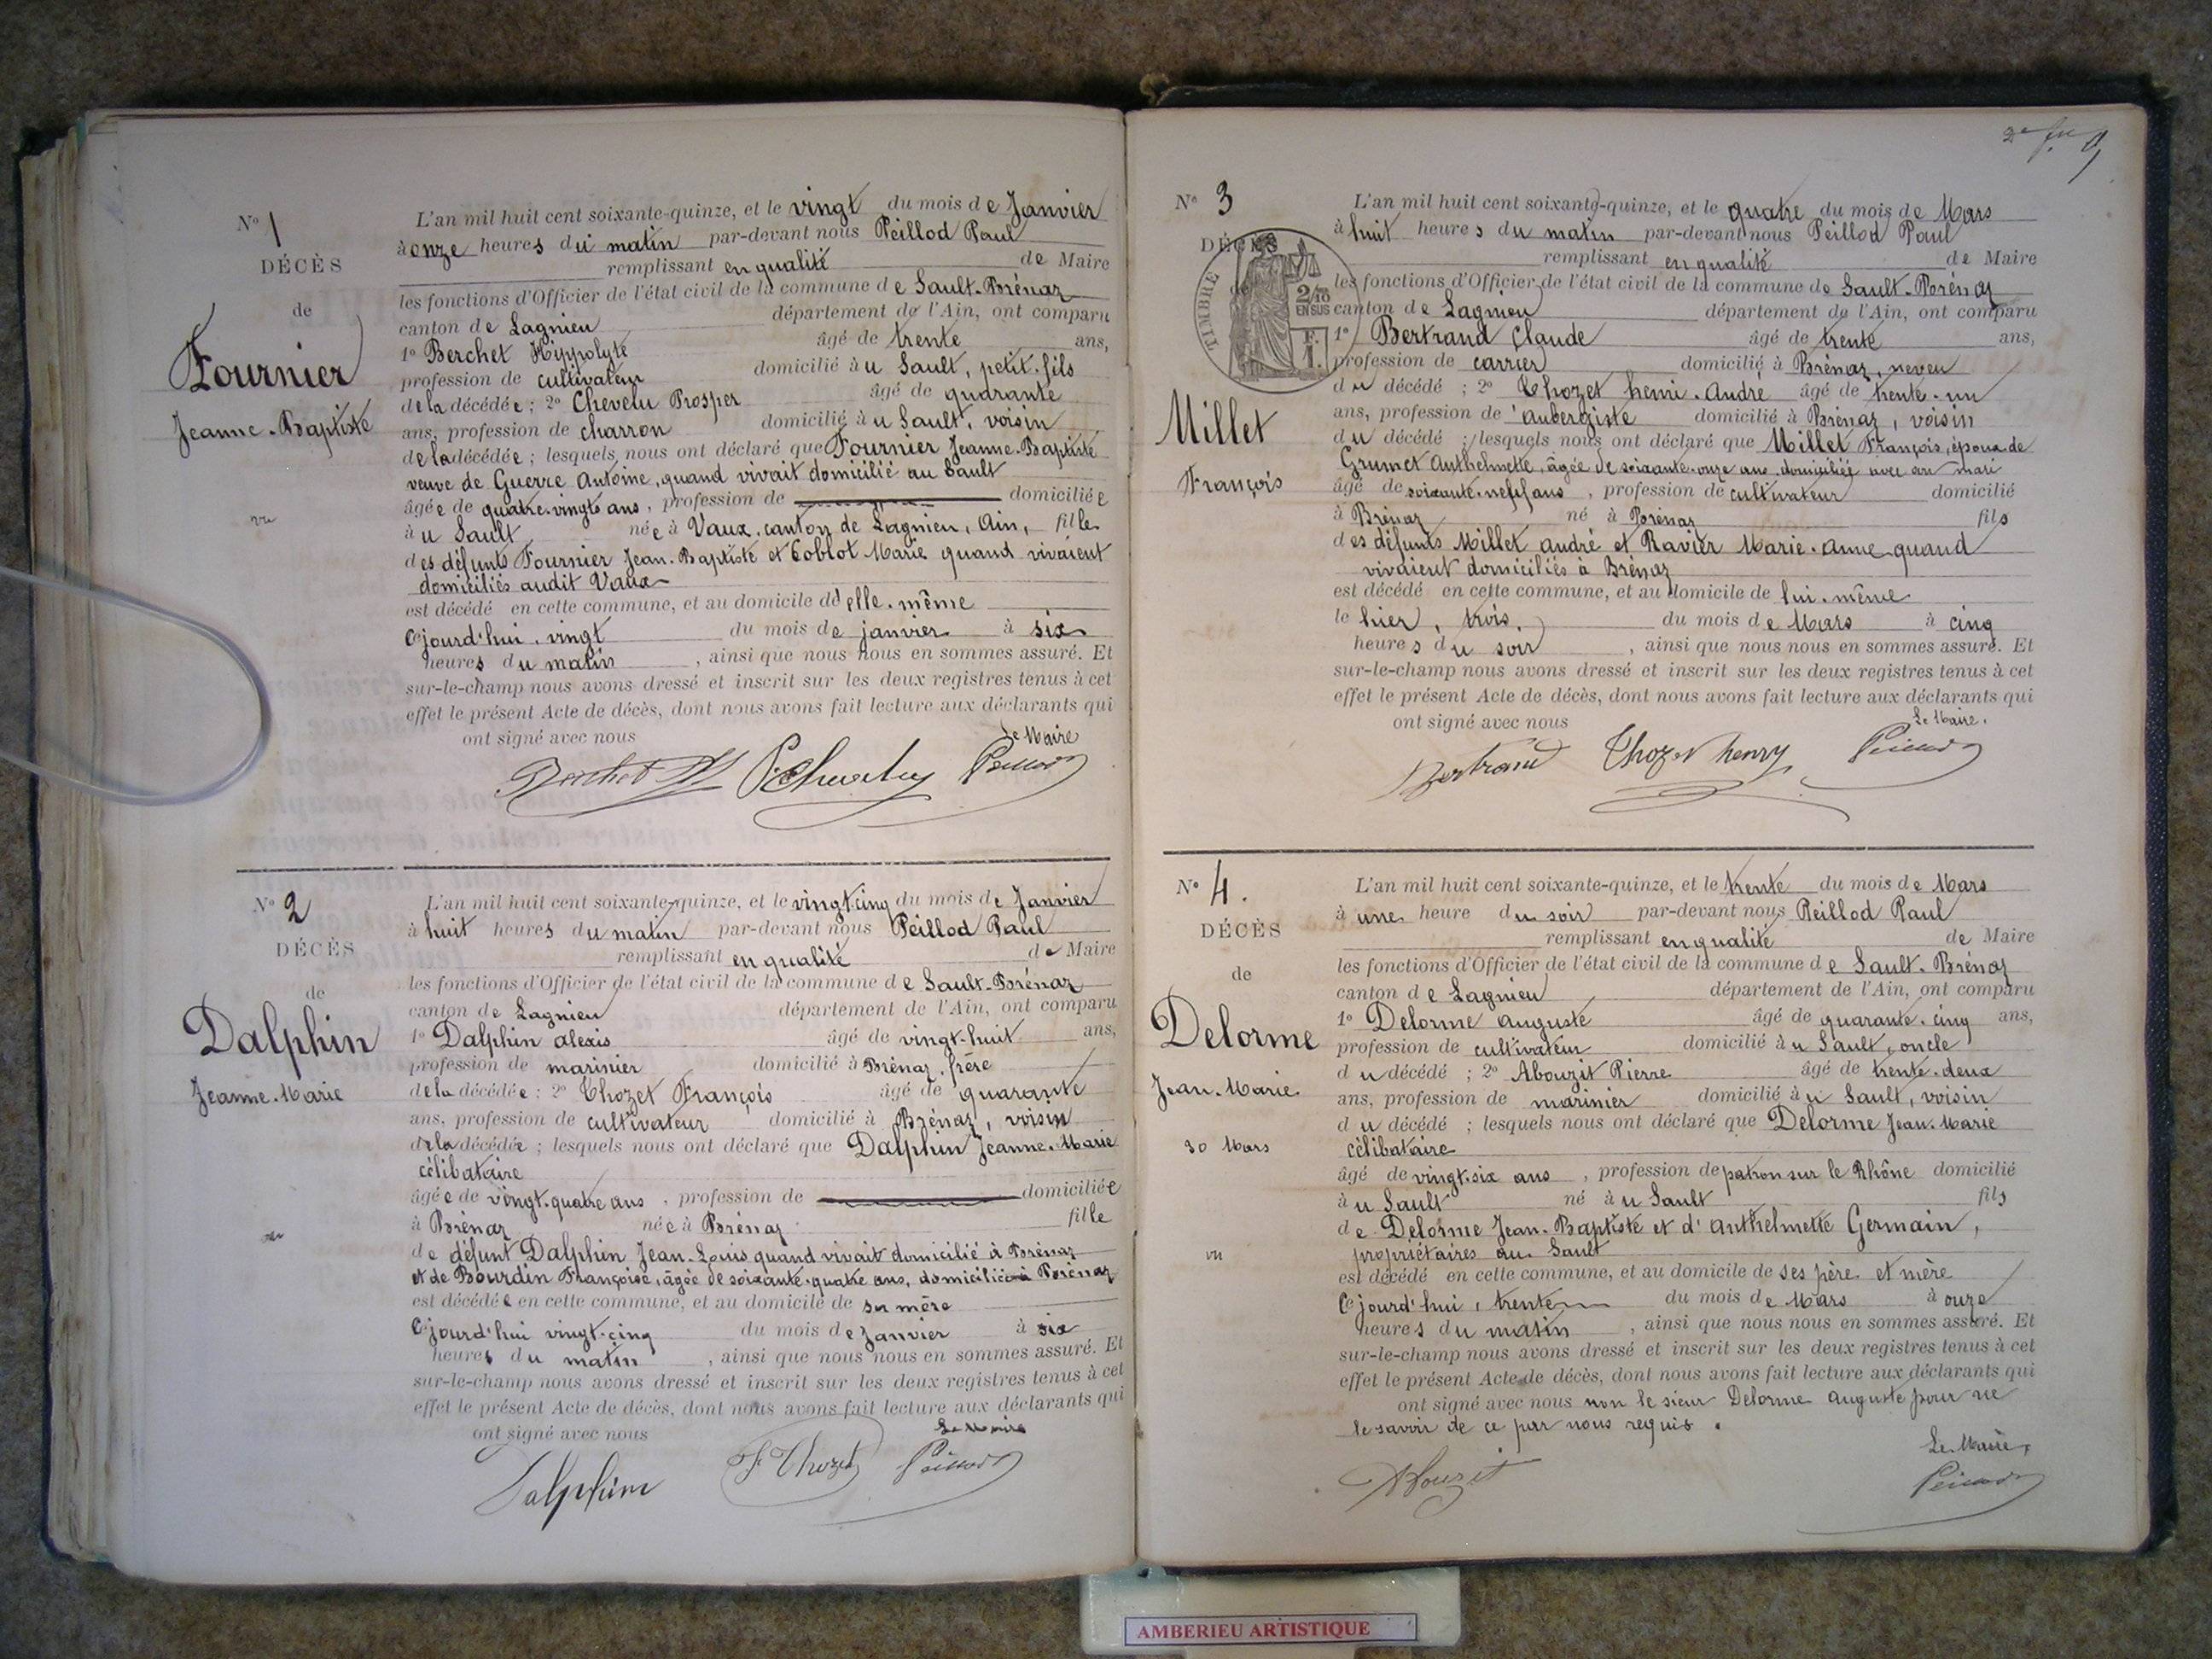 N° 1
DÉCÈS
de
Fournier
Jeanne-Baptiste
vu
L'an mil huit cent soixante-quinze, et le vingt du mois de Janvier
à onze heures du matin par-devant nous Peillod Paul
remplissant en qualité de Maire
les fonctions d'Officier de l'état civil de la commune de Sault-Brénaz
canton de Lagnieu département de l'Ain, ont comparu
1° Berchet Hippolyte âgé de trente ans,
profession de cultivateur domicilié au Sault, petit-fils
de la décédée; 2° Chevelu Prosper âgé de quarante
ans, profession de charron domicilié au Sault, voisin
de la décédée; lesquels nous ont déclaré que Fournier Jeanne-Baptiste
veuve de Guerre Antoine, quand vivait domicilié au Sault
âgée de quatre-vingts ans, profession de domiciliée
au Sault née à Vaux, canton de Lagnieu, Ain, fille
des défunts Fournier Jean-Baptiste et Coblot Marie quand vivaient
domiciliés audit Vaux
est décédé en cette commune, et au domicile d'elle-même
Cejourd'hui, vingt du mois de janvier à six
heures du matin, ainsi que nous nous en sommes assuré. Et
sur-le-champ nous avons dressé et inscrit sur les deux registres tenus à cet
effet le présent Acte de décès, dont nous avons fait lecture aux déclarants qui
ont signé avec nous
Le Maire
Berchet P. Chevelu Peillod
N° 2
DÉCÈS
de
Dalphin
Jeanne-Marie
L'an mil huit cent soixante-quinze, et le vingt-cinq du mois de Janvier
à huit heures du matin par-devant nous Peillod Paul
remplissant en qualité de Maire
les fonctions d'Officier de l'état civil de la commune de Sault-Brénaz
canton de Lagnieu département de l'Ain, ont comparu
1° Dalphin Alexis âgé de vingt-huit ans,
profession de marinier domicilié à Brénaz, frère
de la décédée: 2° Thozet François âgé de quarante
ans, profession de cultivateur domicilié à Brénaz, voisin
de la décédée; lesquels nous ont déclaré que Dalphin Jeanne-Marie
célibataire
âgée de vingt-quatre ans, profession de domiciliée
à Brénaz née à Brénaz fille
de défunt Dalphin Jean-Louis quand vivait domicilié à Brénaz
et de Bourdin Françoise, âgée de soixante-quatre ans, domiciliée à Brénaz
est décédée en cette commune, et au domicile de sa mère
Cejourd'hui vingt-cinq du mois de Janvier à six
heures du matin, ainsi que nous nous en sommes assuré. Et
sur-le-champ nous avons dressé et inscrit sur les deux registres tenus à cet
effet le présent Acte de décès, dont nous avons fait lecture aux déclarants qui
ont signé avec nous
Le Maire
Dalphin F. Thozet Peillod
N° 3
DÉCÈS
TIMBRE
2/10
EN SUS
F.
1.
Millet
François
L'an mil huit cent soixante-quinze, et le quatre du mois de Mars
à huit heures du matin par-devant nous Peillod Paul
remplissant en qualité de Maire
les fonctions d'Officier de l'état civil de la commune de Sault-Brénaz
canton de Lagnieu département de l'Ain, ont comparu
1° Bertrand Claude âgé de trente ans,
profession de carrier domicilié à Brénaz, neveu
du décédé; 2° Thozet henri-André âgé de trente-un
ans, profession de aubergiste domicilié à Brénaz, voisin
du décédé; lesquels nous ont déclaré que Millet François, époux de
Grumet Anthelmette, âgée de soixante-onze ans, domiciliée avec son mari
âgé de soixante-neuf ans, profession de cultivateur domicilié
à Brénaz né à Brénaz fils
des défunts Millet André et Ravier Marie-Anne quand
vivaient domiciliés à Brénaz
est décédé en cette commune, et au domicile de lui-même
le hier, trois, du mois de Mars à cinq
heures du soir, ainsi que nous nous en sommes assuré. Et
sur-le-champ nous avons dressé et inscrit sur les deux registres tenus à cet
effet le présent Acte de décès, dont nous avons fait lecture aux déclarants qui
ont signé avec nous
Le Maire.
Bertrand Thozet henry Peillod
N° 4.
DÉCÈS
de
Delorme
Jean-Marie
30 Mars
vu
L'an mil huit cent soixante-quinze, et le trente du mois de Mars
à une heure du soir par-devant nous Peillod Paul
remplissant en qualité de Maire
les fonctions d'Officier de l'état civil de la commune de Sault-Brénaz
canton de Lagnieu département de l'Ain, ont comparu
1° Delorme Auguste âgé de quarante-cinq ans,
profession de cultivateur domicilié au Sault, oncle
du décédé; 2° Abouzit Pierre âgé de trente-deux
ans, profession de marinier domicilié au Sault, voisin
du décédé; lesquels nous ont déclaré que Delorme Jean-Marie
célibataire
âgé de vingt-six ans, profession de patron sur le Rhône domicilié
au Sault né au Sault fils
de Delorme Jean-Baptiste et d'Anthelmette Germain,
propriétaires au Sault
est décédé en cette commune, et au domicile de ses père et mère
Cejourd'hui, trente du mois de Mars à onze
heures du matin, ainsi que nous nous en sommes assuré. Et
sur-le-champ nous avons dressé et inscrit sur les deux registres tenus à cet
effet le présent Acte de décès, dont nous avons fait lecture aux déclarants qui
ont signé avec nous non le sieur Delorme Auguste pour ne
le savoir de ce par nous requis.
Le Maire,
Abouzit Peillod
AMBERIEU ARTISTIQUE